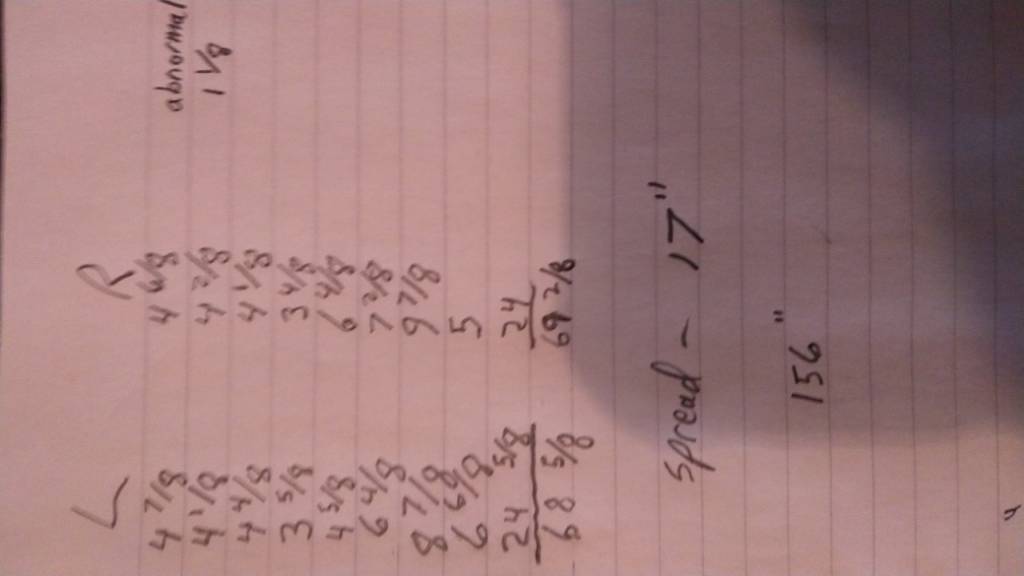 L R
4 7/8 4 6/8 abnormal
4 1/8 4 2/8 1 1/8
4 4/8 4 1/8
3 5/8 3 4/8
4 5/8 6 4/8
6 4/8 7 2/8
8 7/8 9 7/8
6 6/8 5
24 5/8 24
68 5/8 69 2/8
Spread - 17"
156"